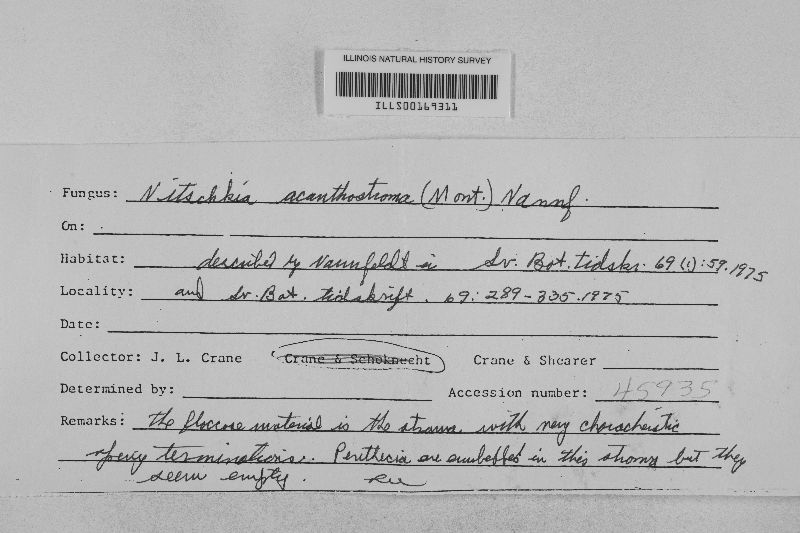 ILLINOIS NATURAL HISTORY SURVEY
ILLS00169311
Fungus: Nitschkia acanthostroma (Mont.) Nannf.
On:
Habitat: described by Nannfeldt in Sv. Bot. tidskr. 69(1):59.1975
Locality: and Sv. Bot. tidskrift. 69:289-335.1975
Date:
Collector: J. L. Crane Crane & Schoknecht Crane & Shearer
Determined by: Accession number: 45935
Remarks: the floccose material is the stroma with very characteristic
spiney terminations. Perithecia are embedded in this stroma but they
seem empty.